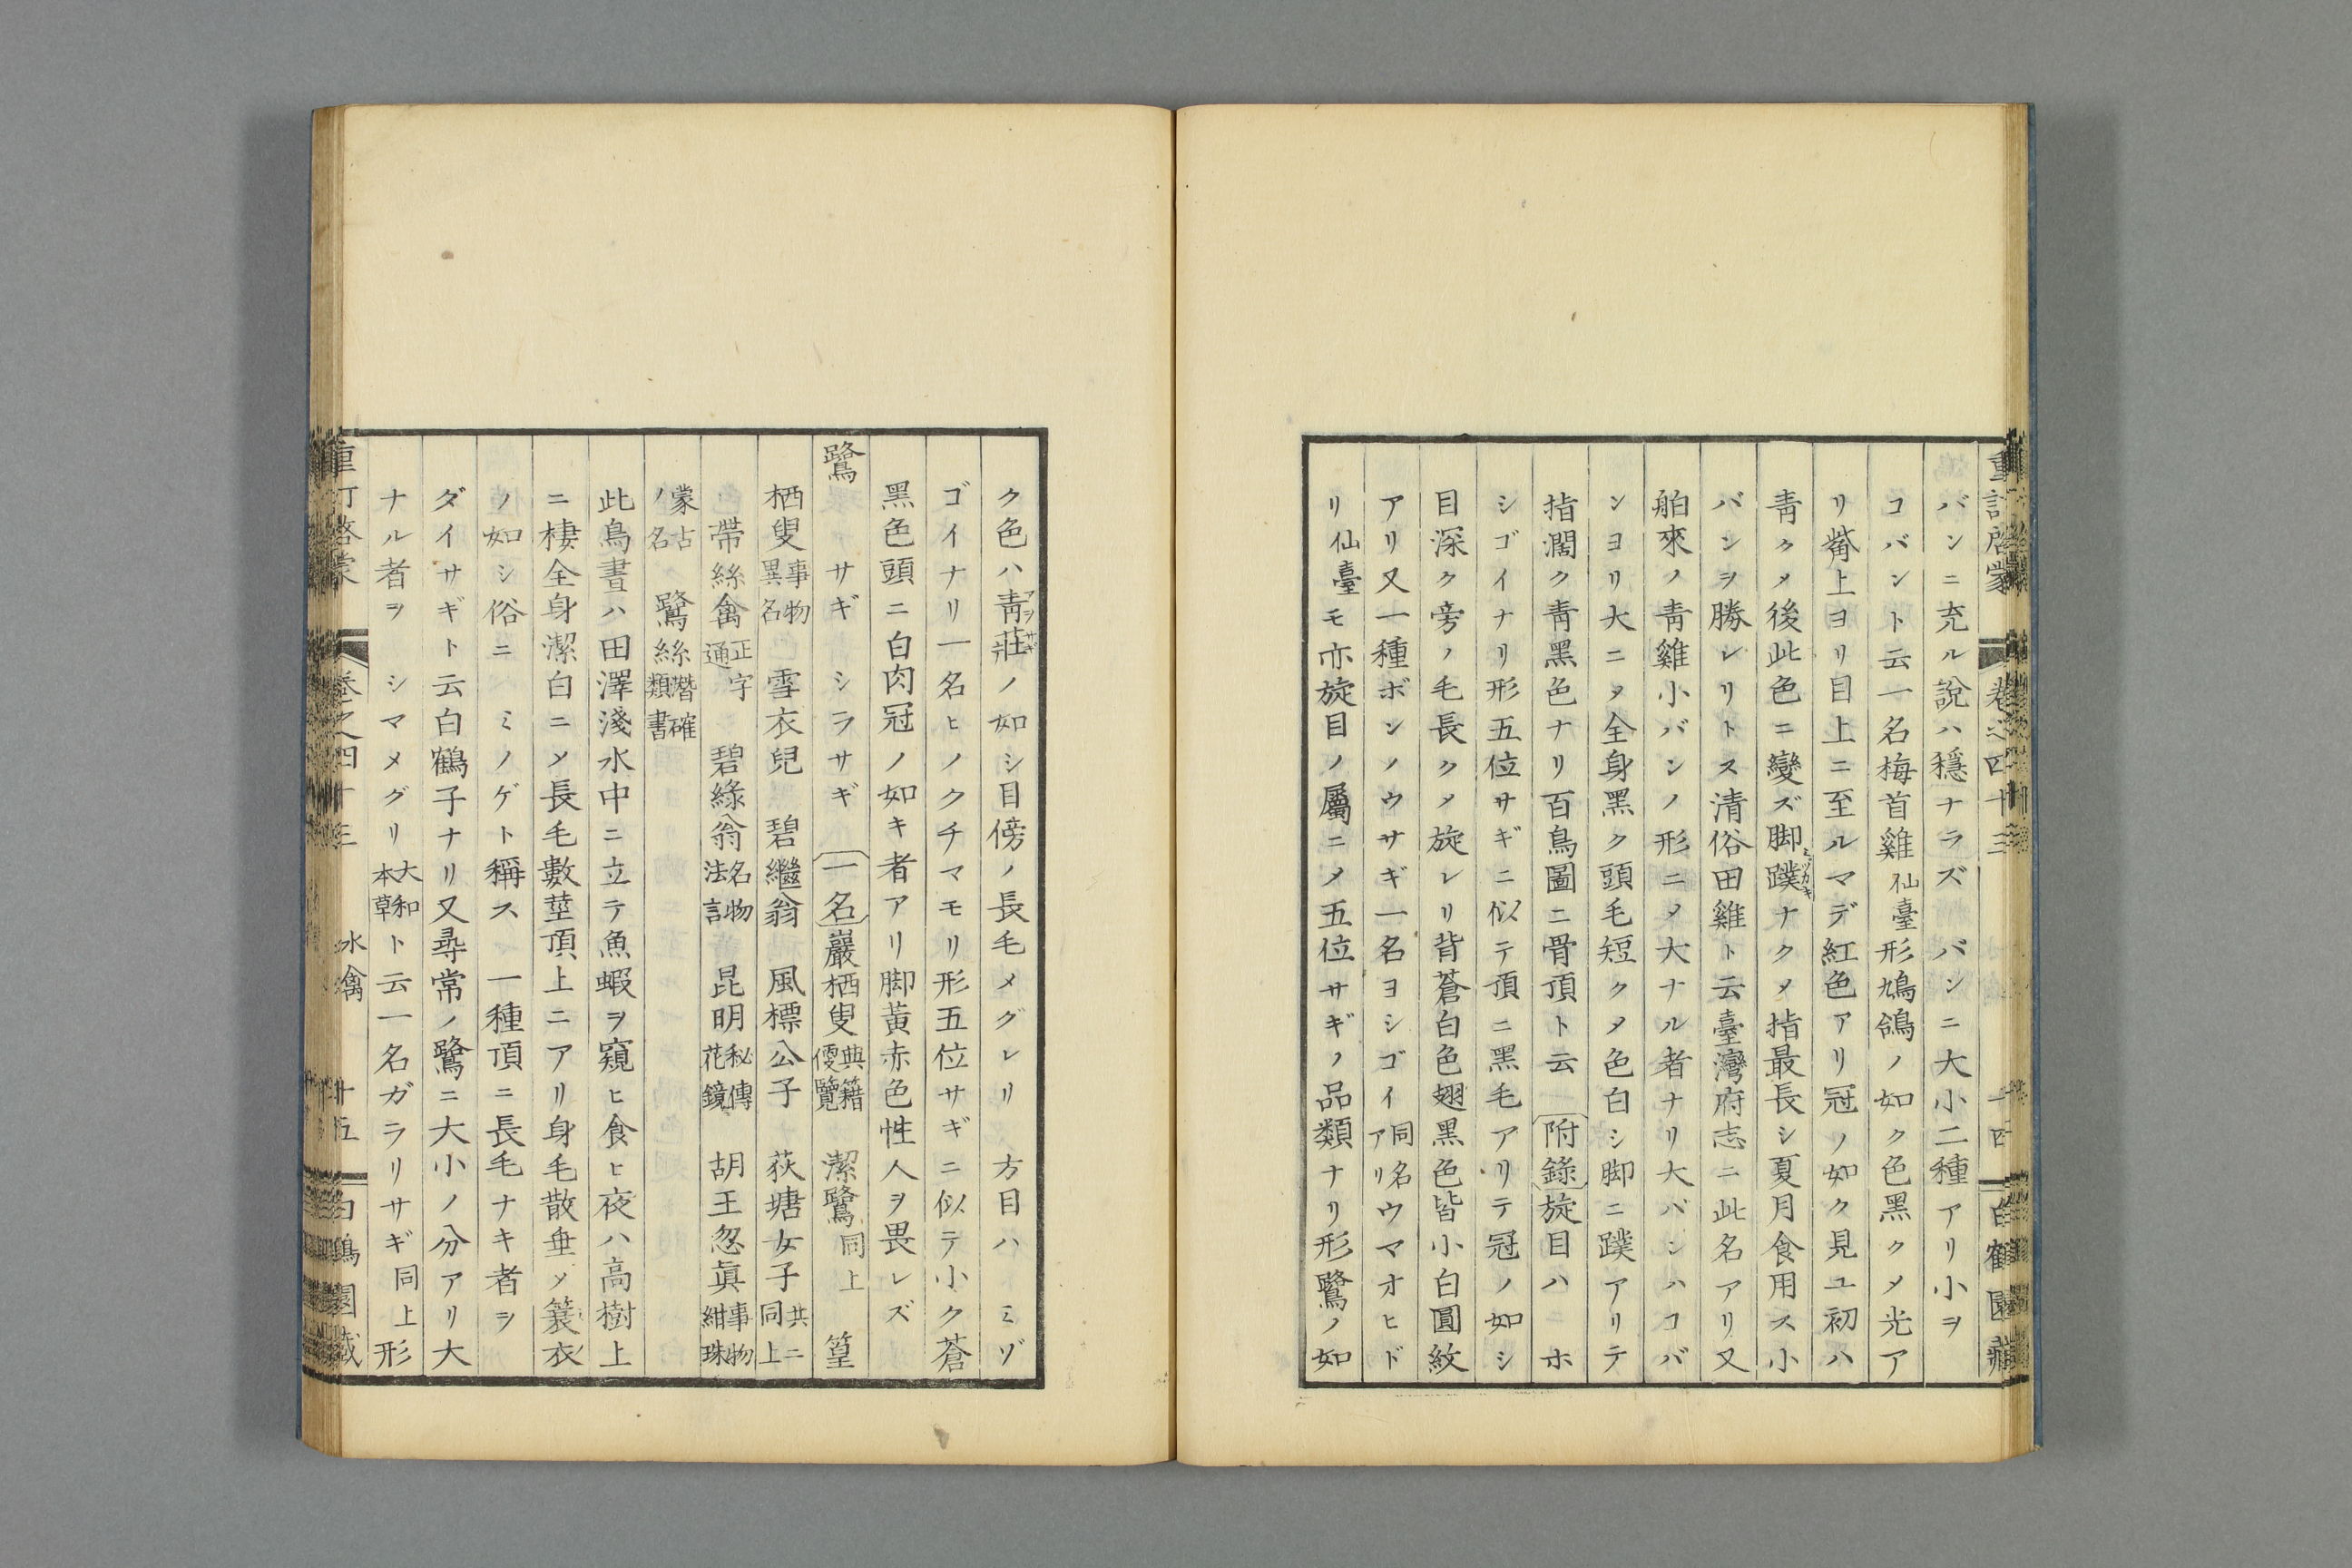 重訂啓蒙 卷之四十三 十四 白鶴園藏
バンニ充ル說ハ穩ナラズ バンニ大小二種アリ小ヲ
コバント云一名梅首雞仙臺形鳩鴿ノ如ク色黑クメ光ア
リ觜上ヨリ目上ニ至ルマデ紅色アリ冠ノ如ク見ユ初ハ
靑クメ後此色ニ變ズ脚蹼ミヅカキナクメ指最長シ夏月食用ス小
バンヲ勝レリトス清俗田雞ト云臺灣府志ニ此名アリ又
舶來ノ靑雞小バンノ形ニメ大ナル者ナリ大バンハコバ
ンヨリ大ニメ全身黑ク頭毛短クメ色白シ脚ニ蹼アリテ
指濶ク靑黑色ナリ百鳥圖ニ骨頂ト云 附錄旋目ハ ホ
シゴイナリ形五位サギニ似テ頂ニ黑毛アリテ冠ノ如シ
目深ク旁ノ毛長クメ旋レリ背蒼白色翅黑色皆小白圓紋
アリ又一種ボンノウサギ一名ヨシゴイ同名アリウマオヒド
リ仙臺モ亦旋目ノ屬ニメ五位サギノ品類ナリ形鷺ノ如
ク色ハ靑莊アヲサギノ如シ目傍ノ長毛メグレリ 方目ハ ミゾ
ゴイナリ一名ヒノクチマモリ形五位サギニ似テ小ク蒼
黑色頭ニ白肉冠ノ如キ者アリ脚黃赤色性人ヲ畏レズ
鷺 サギ シラサギ 一名巖栖叟典籍便覽 潔鷺同上 篁
栖叟事物異名 雪衣兒 碧繼翁 風標公子 荻塘女子共ニ同上
帶絲禽正字通 碧綠翁名物法言 昆明秘傳花鏡 胡王忽眞事物紺珠
蒙古ノ名 鷺絲潛確類書
此鳥晝ハ田澤淺水中ニ立テ魚蝦ヲ窺ヒ食ヒ夜ハ高樹上
ニ棲全身潔白ニメ長毛數莖頂上ニアリ身毛散垂メ簑衣
ノ如シ俗ニ ミノゲト稱ス 一種頂ニ長毛ナキ者ヲ
ダイサギト云白鶴子ナリ又尋常ノ鷺ニ大小ノ分アリ大
ナル者ヲ シマメグリ大和本草ト云一名ガラリサギ同上形
重訂啓蒙 卷之四十三 水禽 十五 白鶴園藏